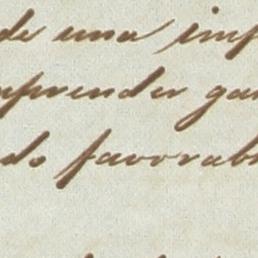 de una imp
mprender gar
do favorabl